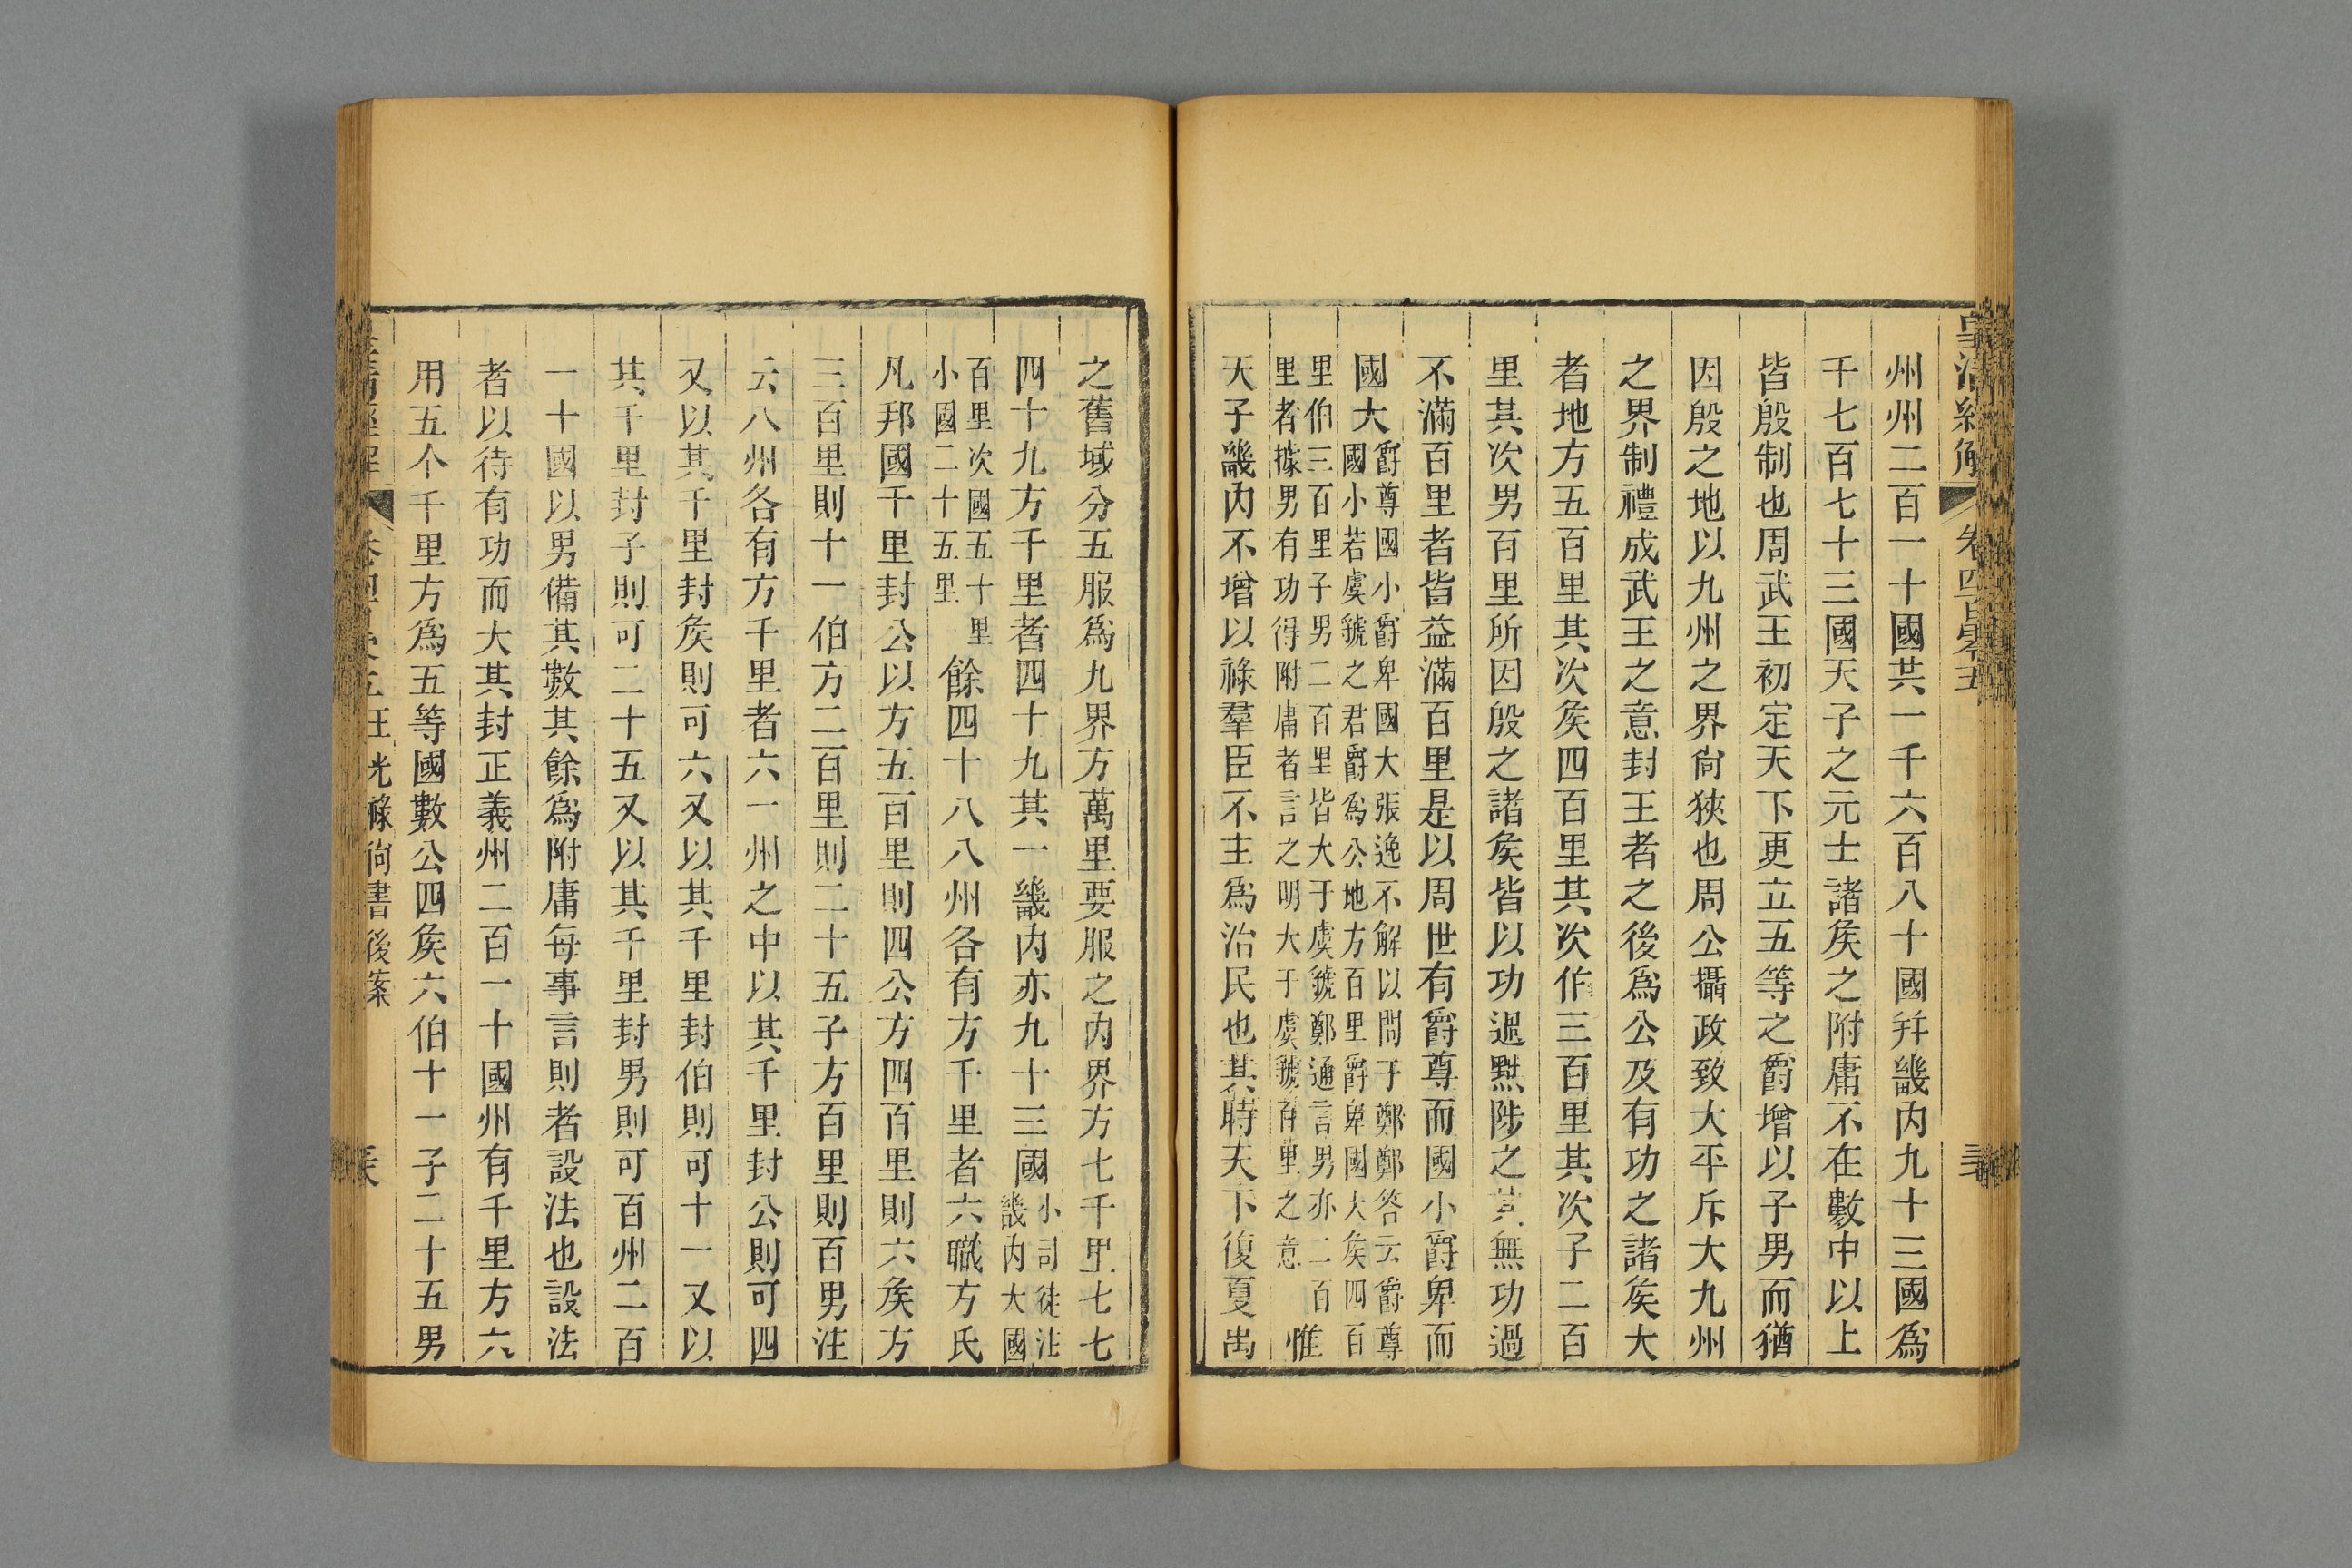 皇清經解
卷四百零五
州州二百一十國共一千六百八十國并畿内九十三國爲
千七百七十三國天子之元士諸矦之附庸不在數中以上
皆殷制也周武王初定天下更立五等之爵增以子男而猶
因殷之地以九州之界尙狹也周公攝政致大平斥大九州
之界制禮成武王之意封王者之後爲公及有功之諸矦大
者地方五百里其次矦四百里其次伯三百里其次子二百
里其次男百里所因殷之諸矦皆以功過黜陟之其無功過
不滿百里者皆益滿百里是以周世有爵尊而國小爵卑而
國大
爵尊國小爵卑國大張逸不解以問于鄭鄭答云爵尊
國小若虞虢之君爵爲公地方百里爵卑國大矦四百
里伯三百里子男二百里皆大于虞虢鄭通言男亦二百
里者據男有功得附庸者言之明大于虞虢百里之意
惟
天子畿内不增以祿羣臣不主爲治民也其時天下復夏禹
之舊域分五服爲九界方萬里要服之内界方七千里七七
四十九方千里者四十九其一畿内亦九十三國
小司徒注
畿内大國
百里次國五十里
小國二十五里
餘四十八八州各有方千里者六職方氏
凡邦國千里封公以方五百里則四公方四百里則六矦方
三百里則十一伯方二百里則二十五子方百里則百男注
云八州各有方千里者六一州之中以其千里封公則可四
又以其千里封矦則可六又以其千里封伯則可十一又以
其千里封子則可二十五又以其千里封男則可百州二百
一十國以男備其數其餘爲附庸每事言則者設法也設法
者以待有功而大其封正義州二百一十國州有千里方六
用五个千里方爲五等國數公四矦六伯十一子二十五男
王光祿尙書後案